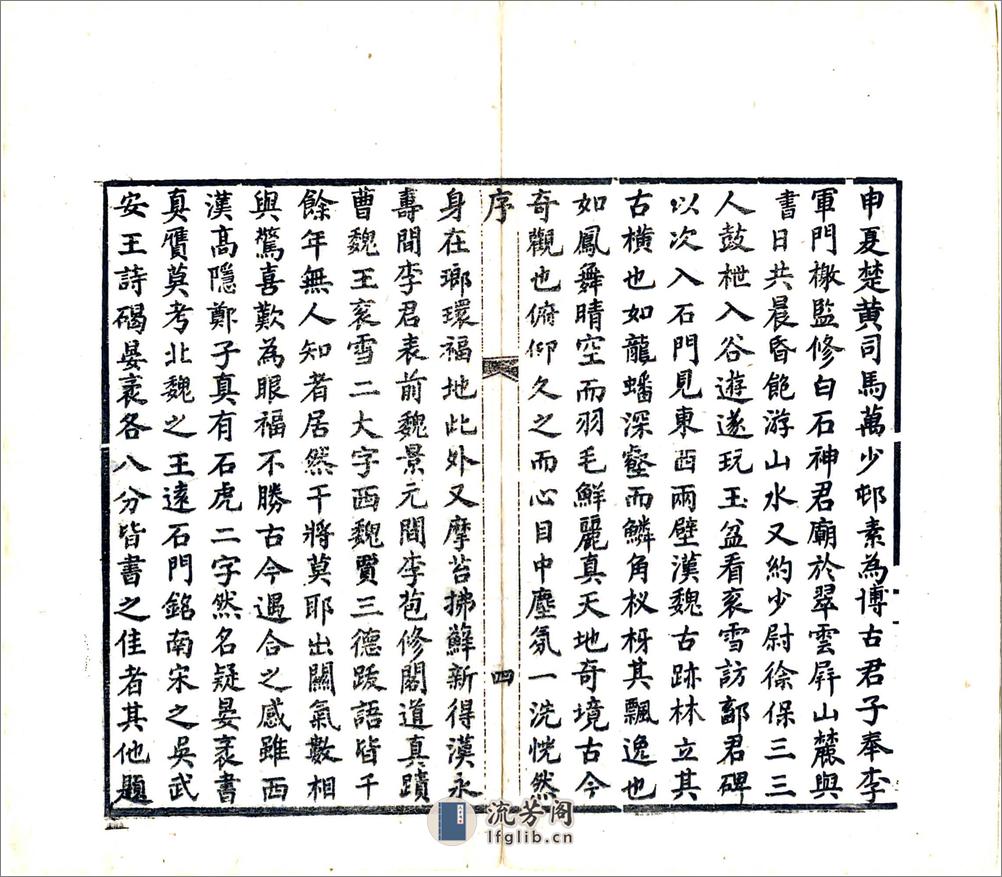 申夏楚黄司馬萬少邨素為博古君子奉李
軍門檄監修白石神君廟於翠雲屏山麓與
書日共晨昏飽游山水又約少尉徐保三三
人鼓枻入谷遊遂玩玉盆看衮雪訪鄐君碑
以次入石門見東西兩壁漢魏古跡林立其
古横也如龍蟠深壑而鱗角杈枒其飄逸也
如鳳舞晴空而羽毛鮮麗真天地奇境古今
奇觀也俯仰久之而心目中塵氛一洗恍然
序
四
身在瑯環福地此外又摩苔拂蘚新得漢永
壽間李君表前魏景元間李苞修閣道真蹟
曹魏王衮雪二大字西魏賈三德跋語皆千
餘年無人知者居然干將莫耶出關氣數相
與驚喜歎為眼福不勝古今遇合之感雖西
漢高隱鄭子真有石虎二字然名疑晏袤書
真贋莫考北魏之王遠石門銘南宋之吳武
安王詩碣晏袤各八分皆書之佳者其他題
流芳阁
lfglib.cn